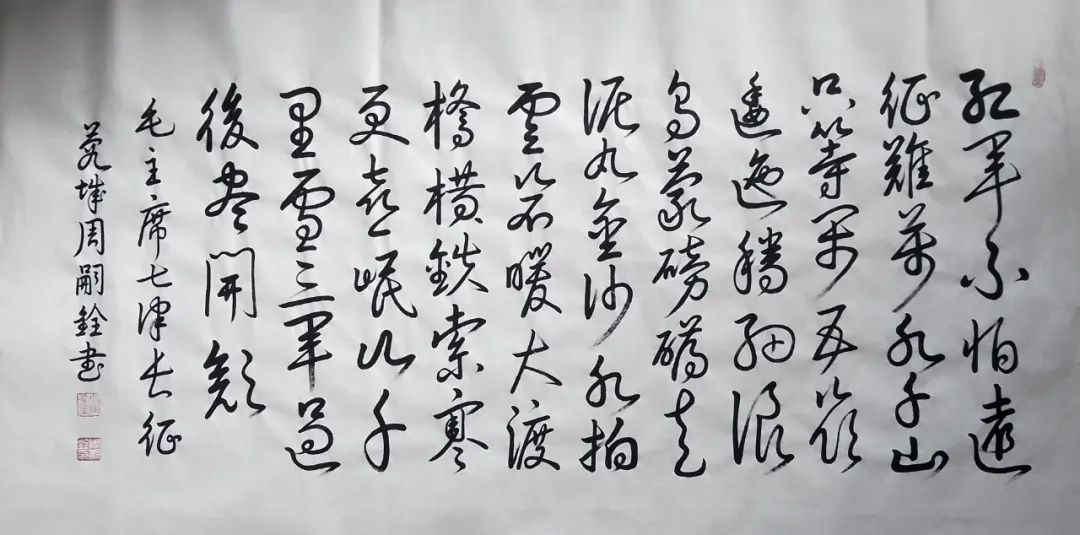 紅軍不怕遠
征難萬水千山
只等閑五嶺
逶迤騰細浪
烏蒙磅礴走
泥丸金沙水拍
雲崖暖大渡
橋橫鉄索寒
更喜岷山千
里雪三軍過
後盡開顏
毛主席七律長征
城周嗣銓書